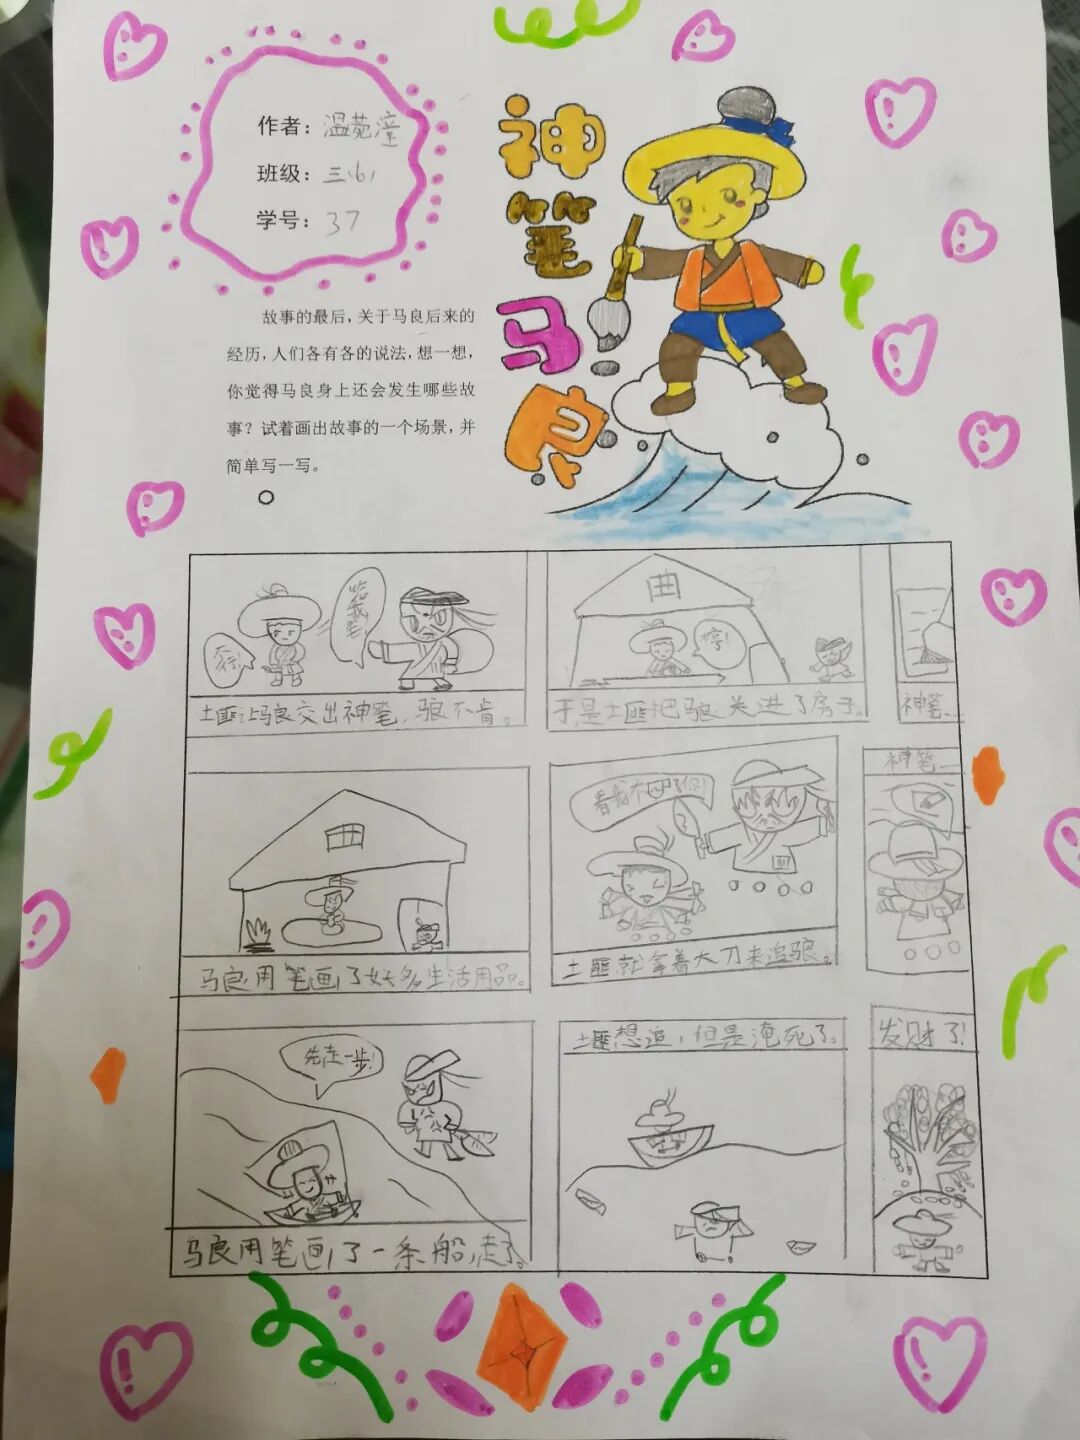 作者：温菀潼
班级：三(6)
学号：37
神笔马良
故事的最后，关于马良后来的
经历，人们各有各的说法，想一想，
你觉得马良身上还会发生哪些故
事？试着画出故事的一个场景，并
简单写一写。
不
给我笔
土匪让马良交出神笔，马良不肯。
哼！
于是土匪把马良关进了房子。
神笔……
马良用笔画了好多生活用品。
看我不
了你！
土匪就拿着大刀来追马良。
神笔……
先走一步！
马良用笔画了一条船，走了。
土匪想追，但是淹死了。
发财了！